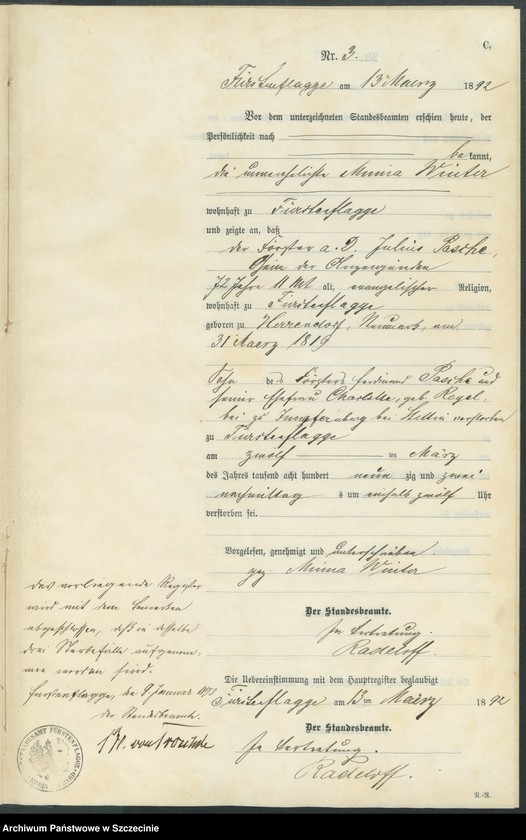 C.
Nr. 3.
Fürstenflagge am 13 Maerz 1892
Vor dem unterzeichneten Standesbeamten erschien heute, der
Persönlichkeit nach
bekannt,
die unverehelichte Minna Winter
wohnhaft zu Fürstenflagge
und zeigte an, daß
der Förster a. D. Julius Pasche,
Oheim der
72 Jahre 11 Mt alt, evangelischer Religion,
wohnhaft zu Fürstenflagge
geboren zu Herrendorf, Neumark, am
31 Maerz 1819
Sohn des Försters Ferdinand Pasche und
seiner Ehefrau Charlotte, geb. Regel,
bei zu bei verstorben
zu Fürstenflagge
am zwölf ten März
des Jahres tausend acht hundert neunzig und zwei
nachmittags um einhalb zwölf Uhr
verstorben sei.
Vorgelesen, genehmigt und unterschrieben
gez Minna Winter
Der Standesbeamte.
In Vertretung.
Radeloff.
Die Uebereinstimmung mit dem Hauptregister beglaubigt
Fürstenflagge am 13ten Maerz 1892
Der Standesbeamte.
In Vertretung.
Radeloff.
Das vorliegende Register
wird mit dem Bemerken
abgeschlossen, daß in dasselbe
drei Sterbefälle aufgenom-
men worden sind.
Fürstenflagge, den Januar
der Standesbeamte.
STANDESAMT FÜRSTENFLAGGE
Archiwum Państwowe w Szczecinie